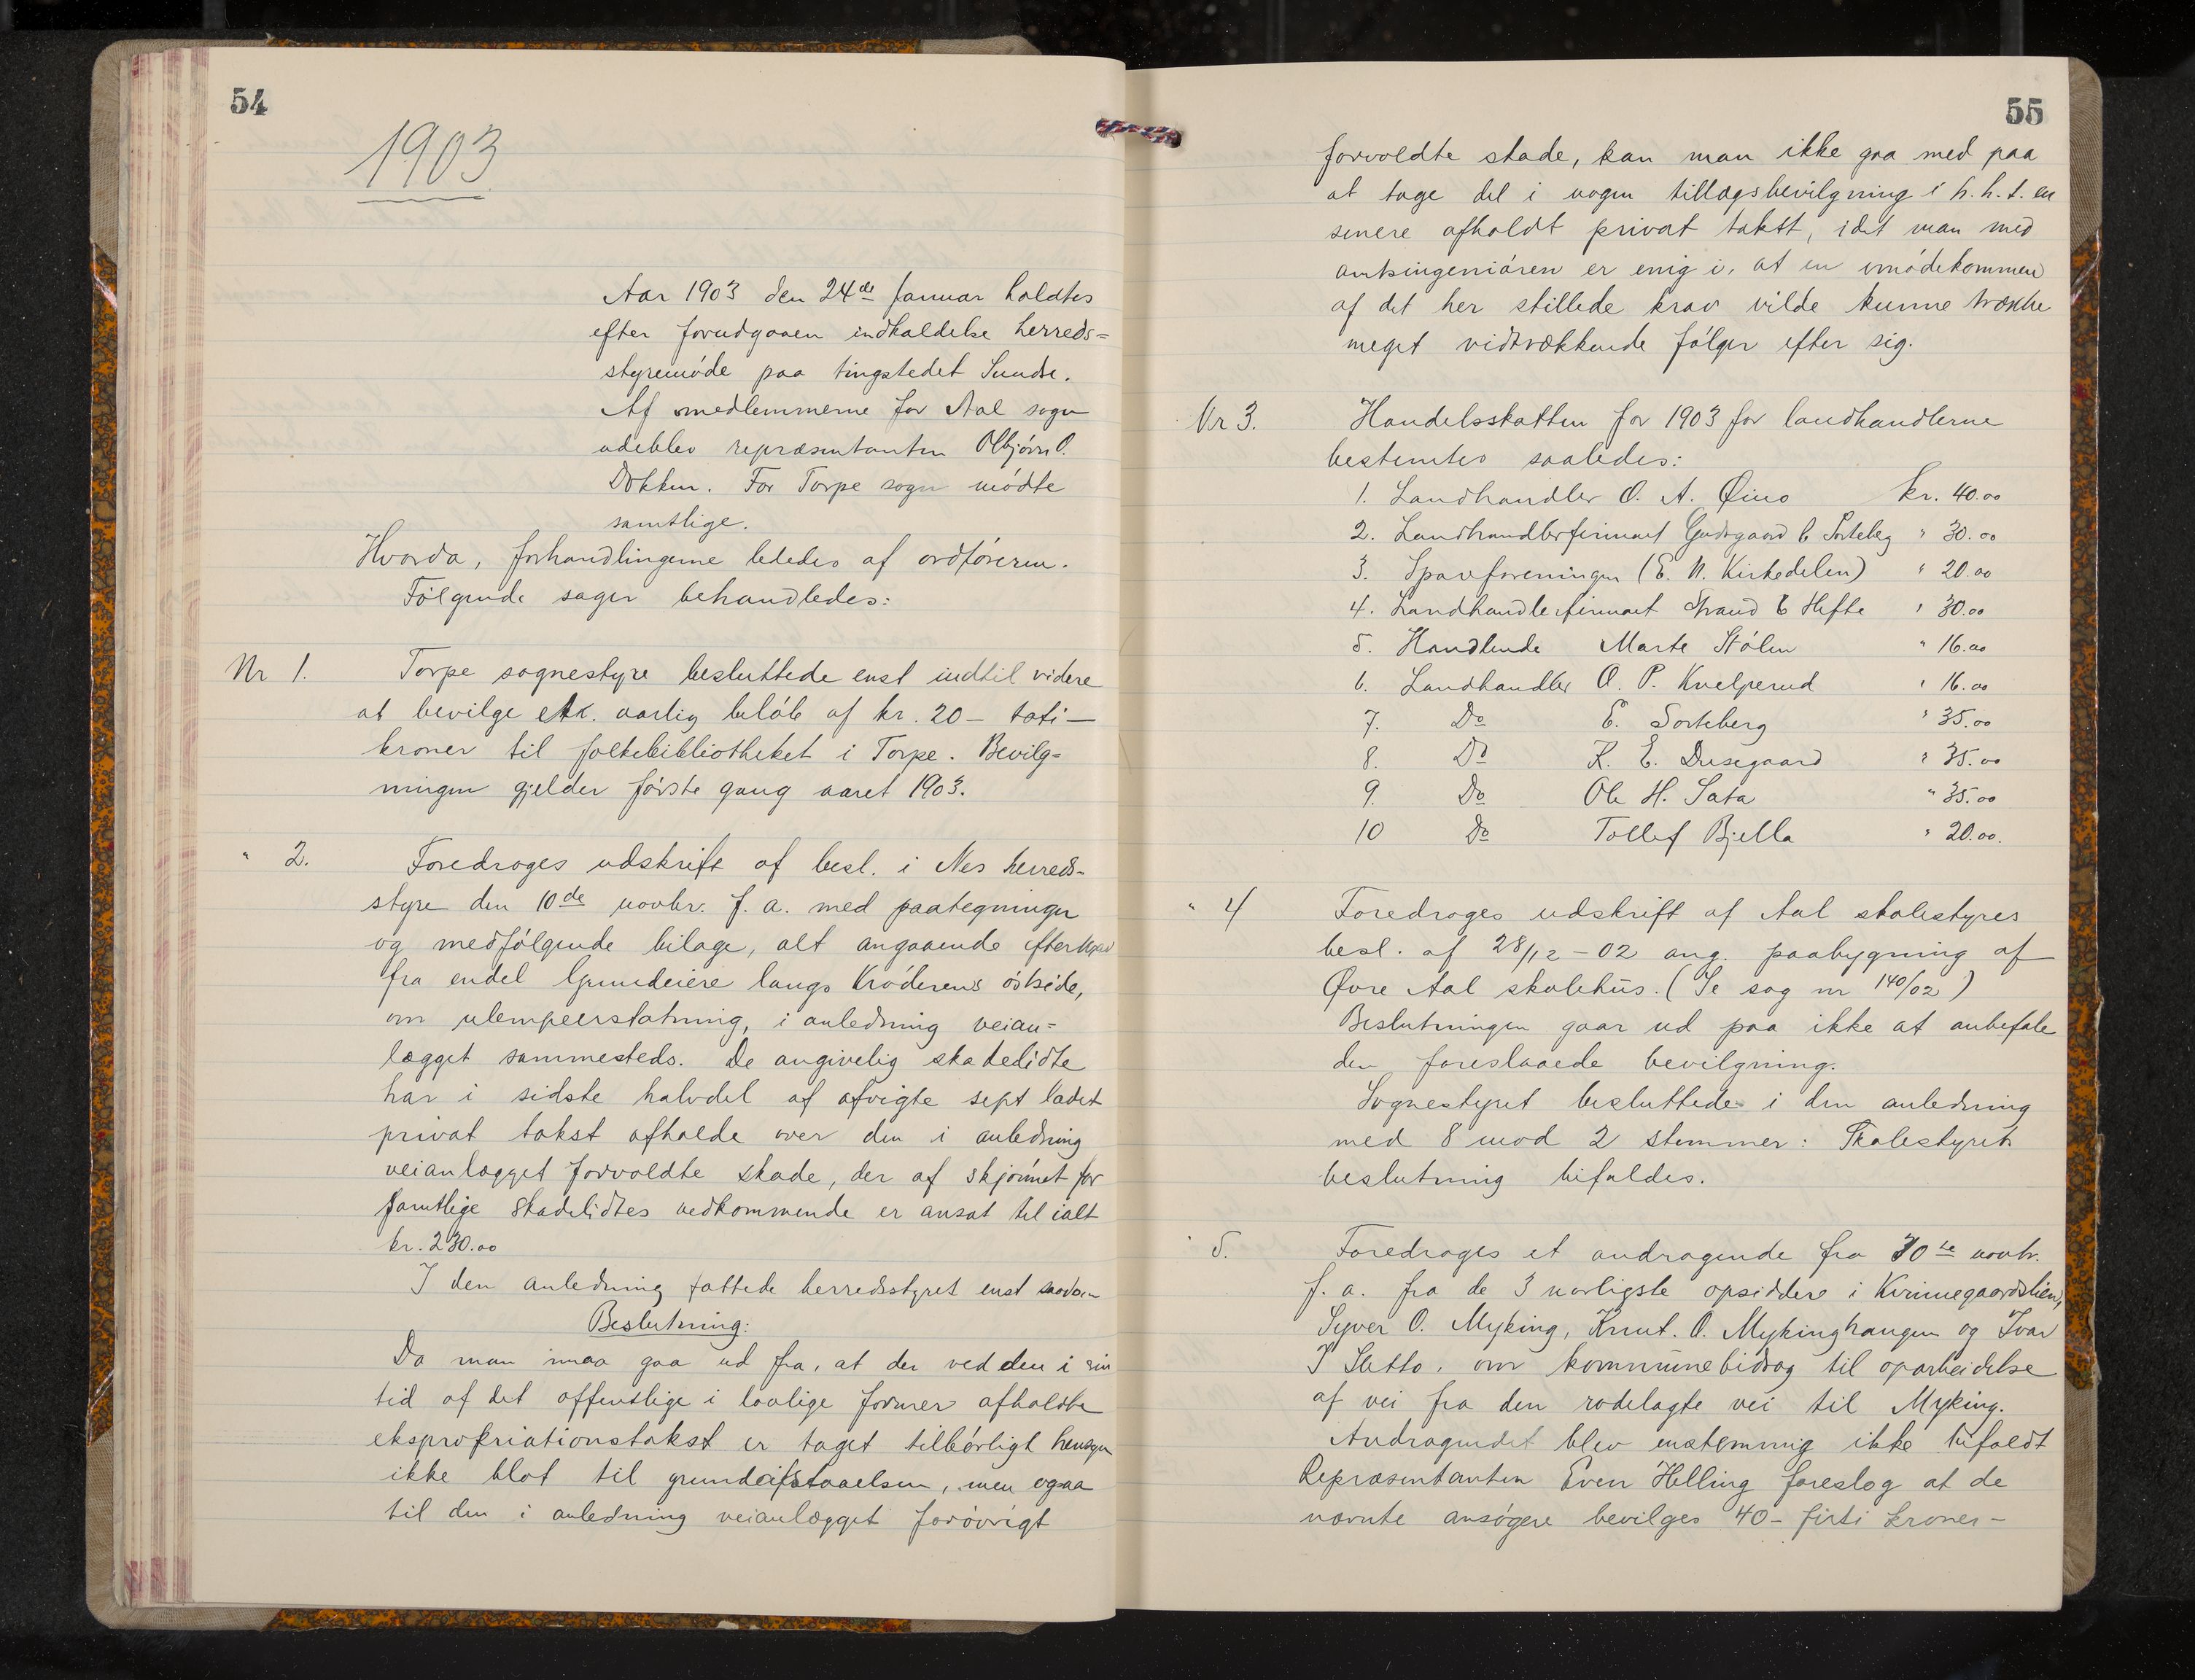 54
1903
Aar 1903 den 24de Januar holdtes
efter forudgaaen indkaldelse herreds=
styremöde paa tingstedet Sundre.
Af medlemmerne for Aal sogn
udeblev repræsentanten Olbjörn O.
Dokken. For Torpe sogn mödte
samtlige.
Hvorda, forhandlingerne lededes af ordföreren.
Fölgende sager behandledes:
Nr 1. Torpe sognestyre besluttede enst indtil videre
at bevilge et aarlig belöb af kr. 20 – toti –
kroner til folkebibliotheket i Torpe. Bevilg=
ningen gjelder förste gang aaret 1903.
" 2. Foredroges udskrift af besl. i Nes herreds-
styre den 10de novbr. f. a. med paategninger
og medfölgende bilage, alt angaaende
fra endel grundeiere langs Kröderens östside,
om ulempeerstatning, i anledning veian=
lægget sammesteds. De angivelig skadelidte
har i sidste halvdel af afvigte sept ladet
privat takst afholde over den i anledning
veianlægget forvoldte skade, der af skjönnet for
samtlige skadelidtes vedkommende er ansat til ialt
kr. 230.00
I den anledning fattede herredsstyret enst saadan
Beslutning:
Da man maa gaa ud fra, at der ved den i sin
tid af det offentlige i lovlige former afholdte
ekspropriationstakst er taget tilbörligt hensyn
ikke blot til grundafstaaelsen, men ogsaa
til den i anledning veianlægget forövrigt
55
forvoldte skade, kan man ikke gaa med paa
at tage del i nogen tillægsbevilgning i h. h. t. en
senere afholdt privat takst, idet man med
amtsingeniören er enig i, at en imödekommen
af det her stillede krav vilde kunne trække
meget vidtrækkende fölger efter sig.
Nr 3. Handelsskatten for 1903 for landhandlerne
bestemtes saaledes:
1. Landhandler O. A. Öino kr. 40.00
2. Landhandlerfirmaet & Sorteberg " 30.00
3. Spareforeningen (E. N. Kirkedelen) " 20.00
4. Landhandlerfirmaet Strand & Hefte " 30.00
5. Handlende Marte Stölen " 16.00
6. Landhandler O. P. Kvelprud " 16.00
7. Do E. Sorteberg " 35.00
8. Do K. E. Dusegaard " 35.00
9. Do Ole H. Sata " 35.00
10 Do Tollef Bjella " 20.00.
" 4 Foredroges udskrift af Aal skolestyres
besl. af 28/12 – 02 ang. paabygning af
Øvre Aal skolehus. (Se sag nr 140/02)
Beslutningen gaar ud paa ikke at anbefale
den foreslaaede bevilgning.
Sognestyret besluttede i den anledning
med 8 mod 2 stemmer: Skolestyrets
beslutning bifaldes.
" 5. Foredroges et andragende fra 30te novbr.
f. a. fra de 3 nordligste opsiddere i Kvinnegaardslien,
Syver O. Myking, Knut. O. Mykinghaugen og Ivar
I Sletto, om kommunebidrag til oparbeidelse
af vei fra den rodelagte vei til Myking.
Andragendet blev enstemmig ikke bifaldt
Repræsentanten Even Helling foreslog at de
nævnte ansögere bevilges 40 – firti kroner –